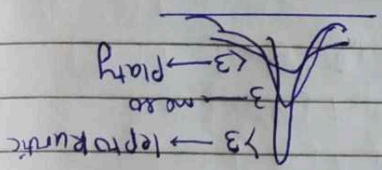 >3 → leptokurtic
3 — meso
<3 → platy